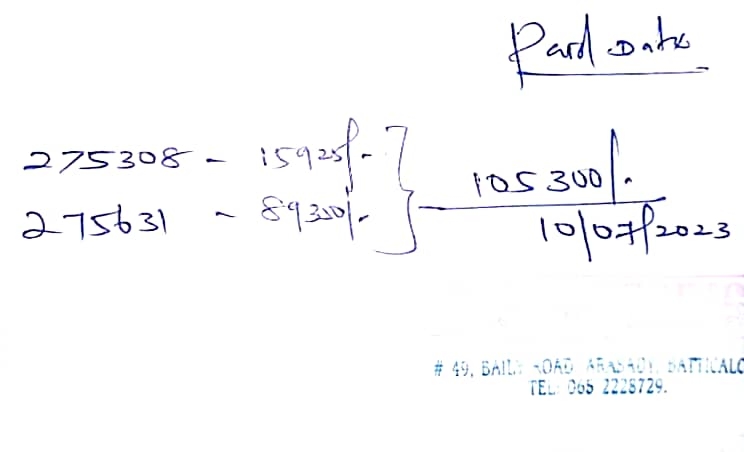 Paid Date
275308 - 15925/-
275631 - 89350/-
105300/-
10/07/2023
# 49, BAIL ROAD ARASADY, BATTICALO
TEL: 065 2228729.